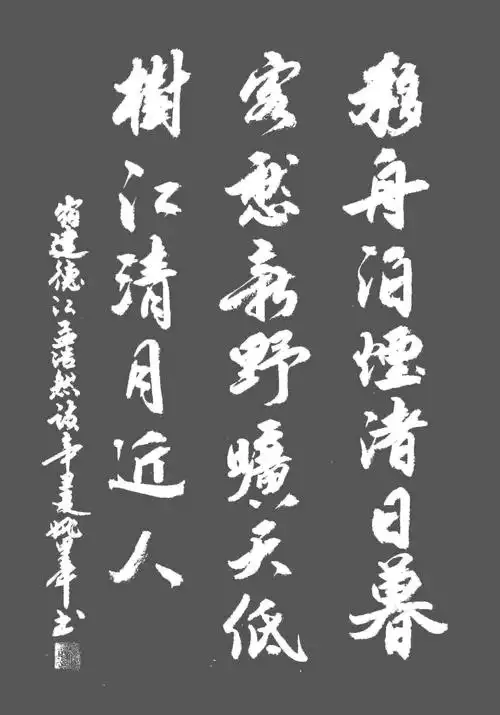 移舟泊煙渚日暮
客愁新野曠天低
樹江清月近人
宿建德江孟浩然詩辛夏姚軍书